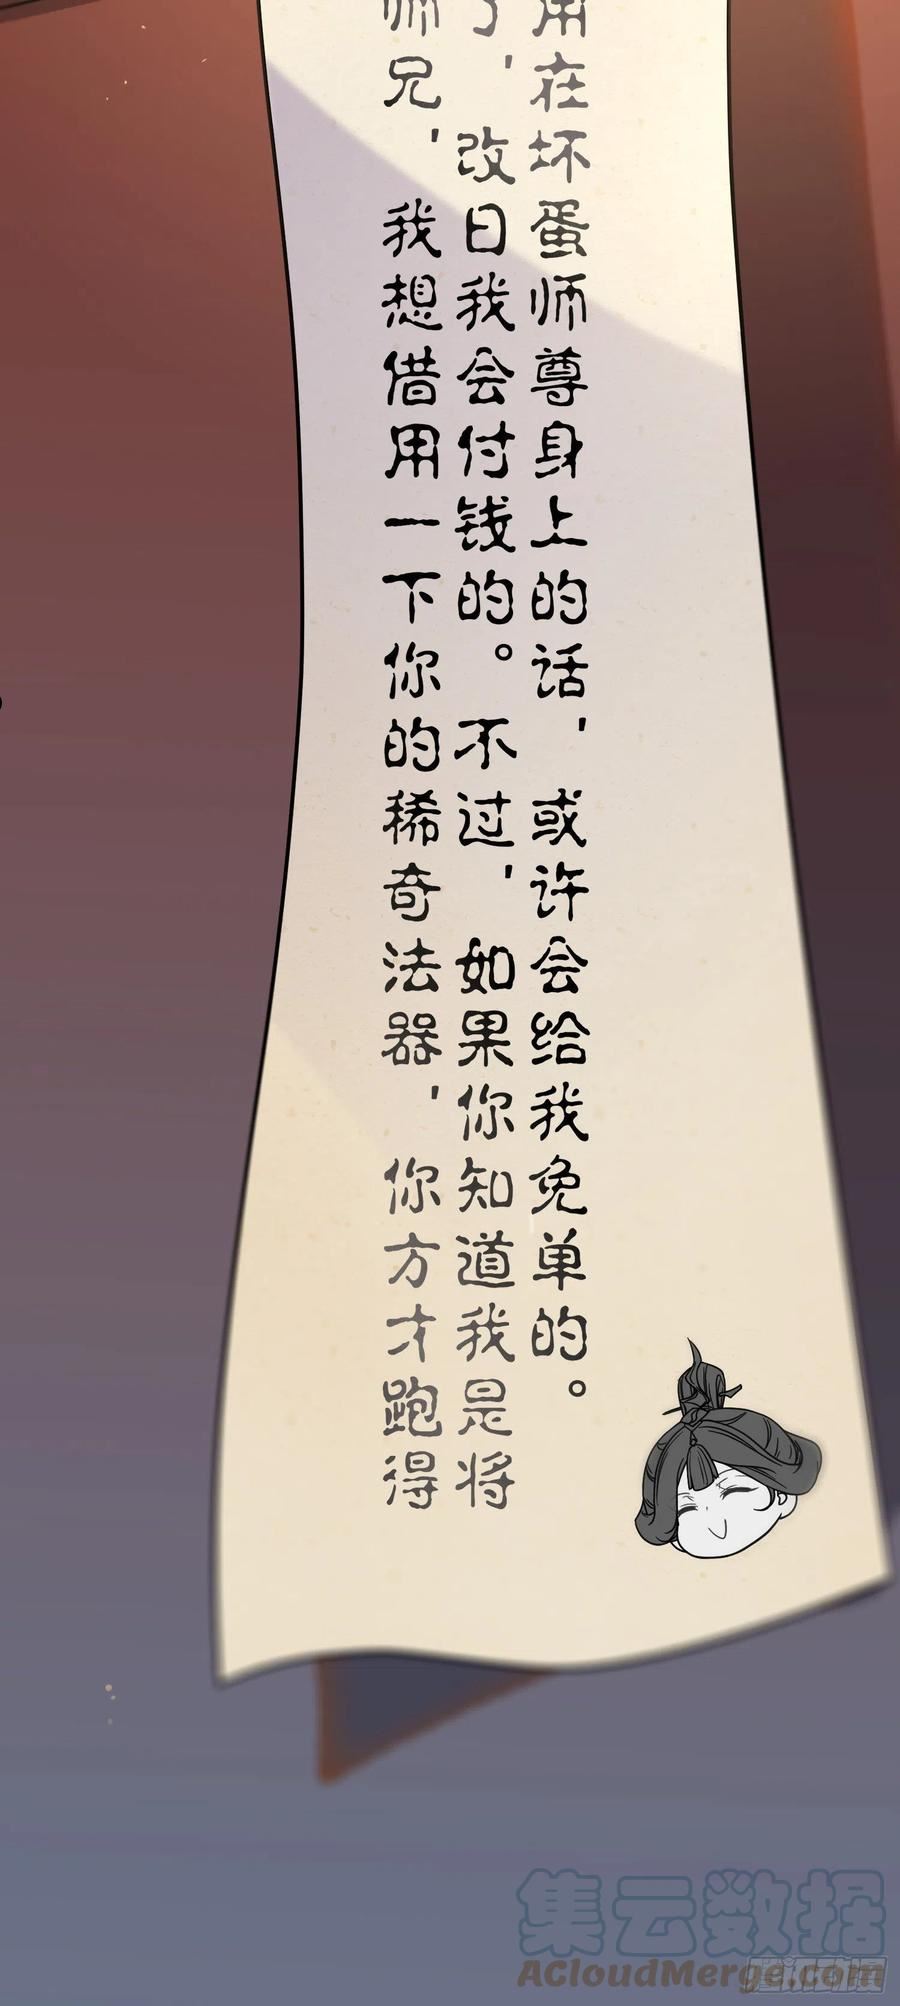 师兄，我想借用一下你的稀奇法器，你方才跑得
了，改日我会付钱的。不过，如果你知道我是将
用在坏蛋师尊身上的话，或许会给我免单的。
集云数据
ACloudMerge.com